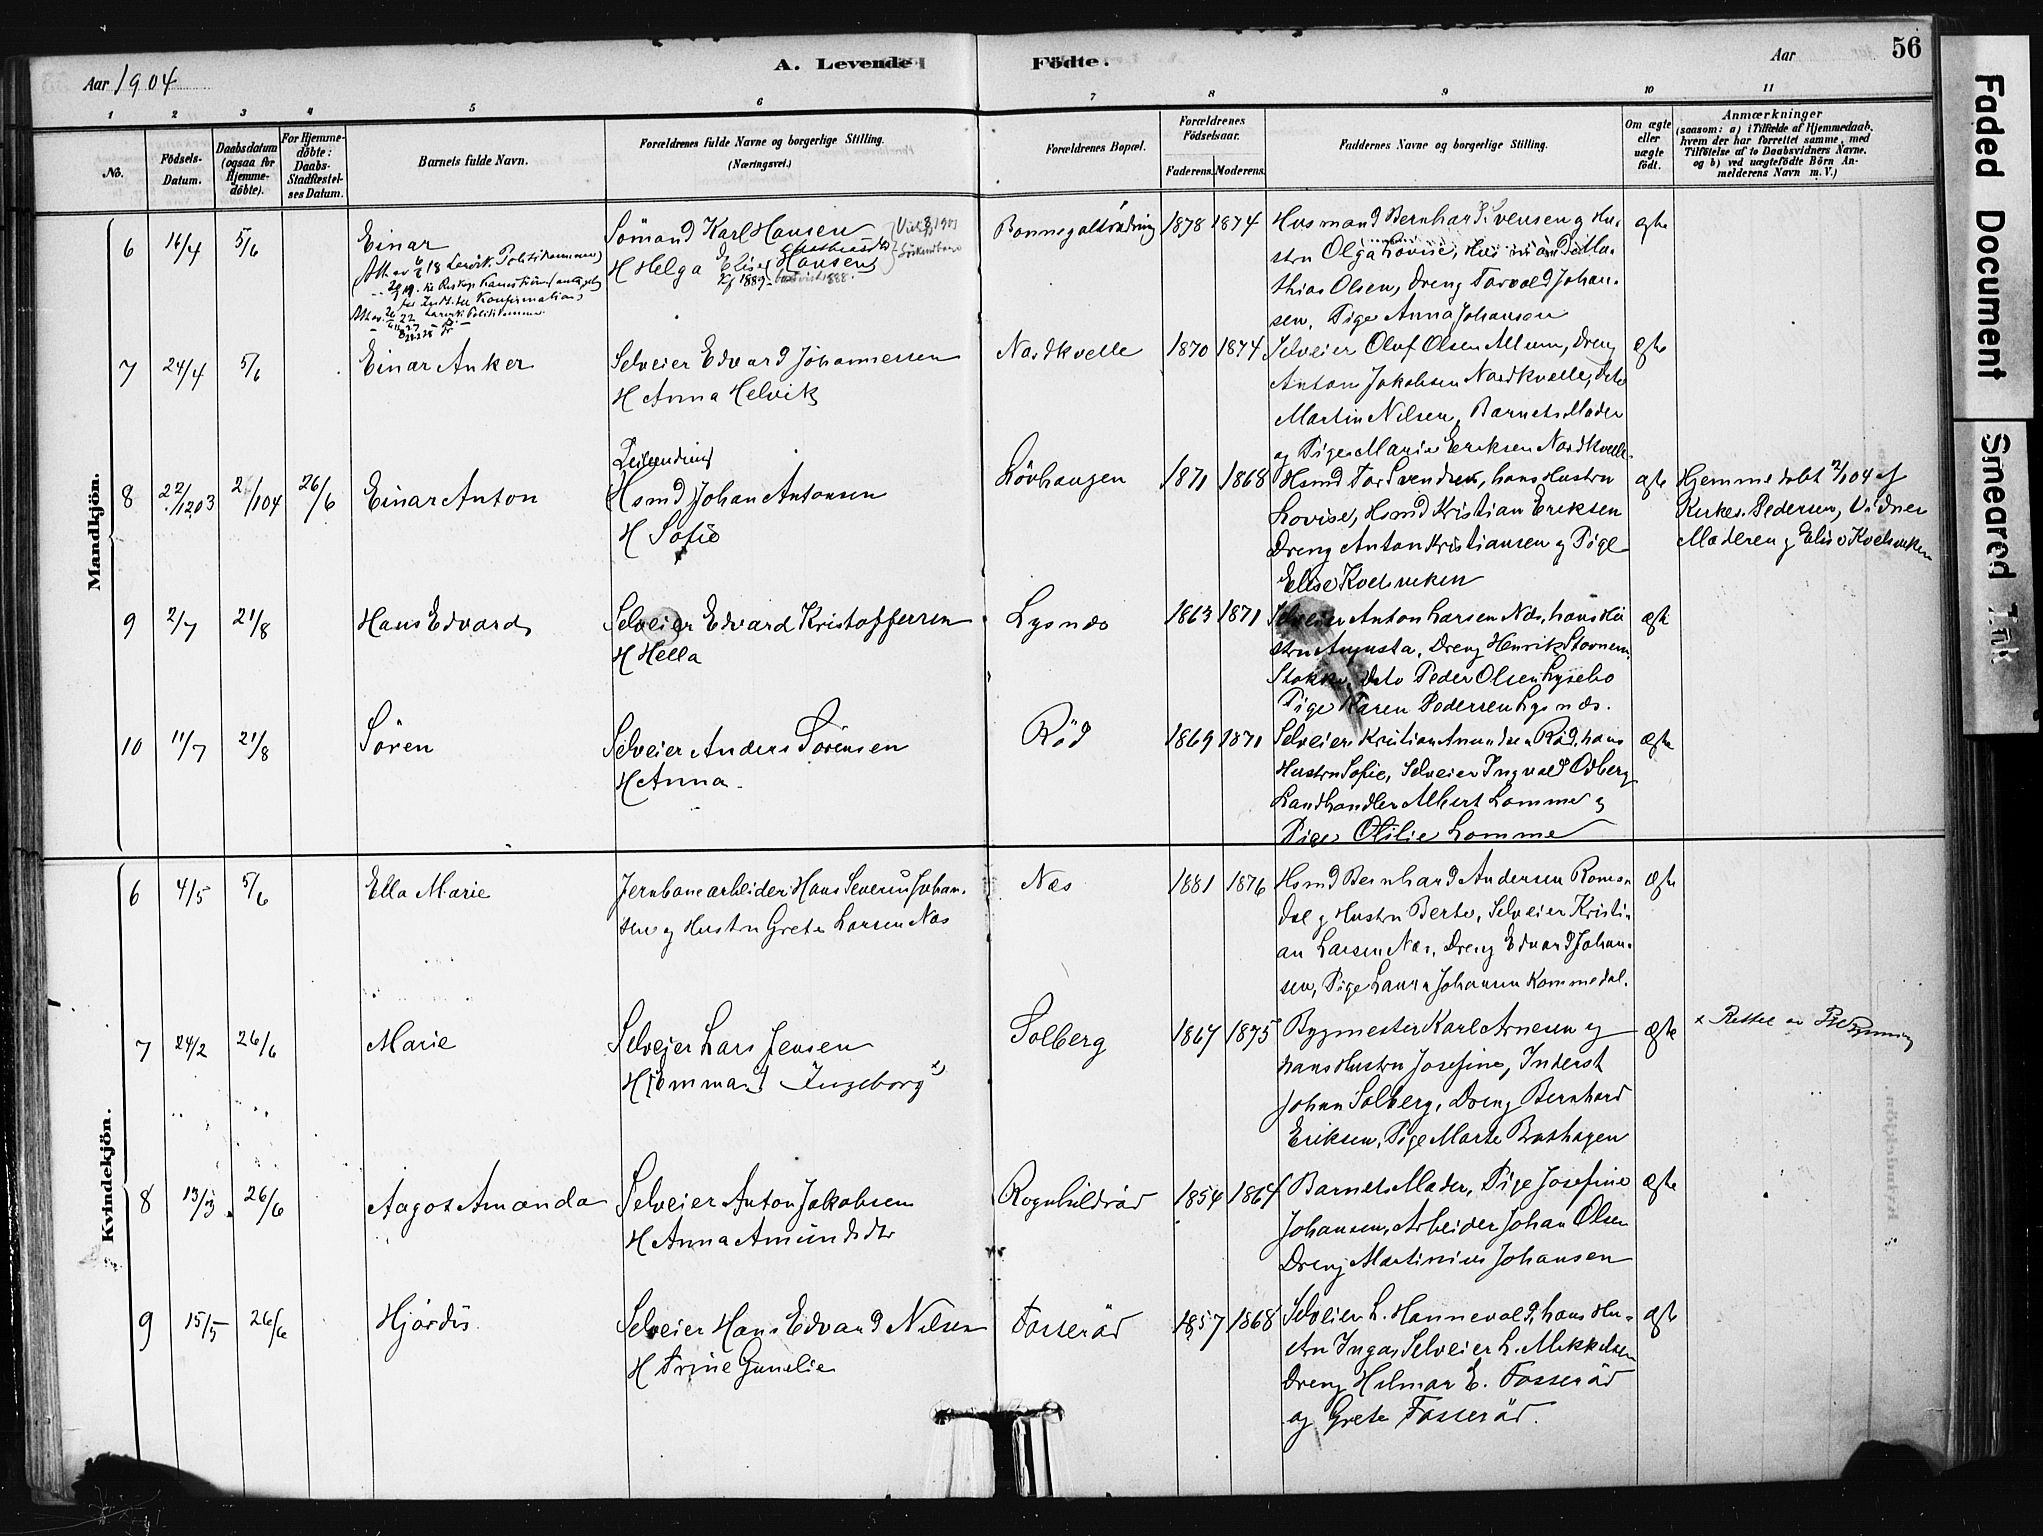 Aar 1904
A. Levende Födte.
Aar
56
1 2 3 4 5 6 7 8 9 10 11
No.
Födsels-Datum.
Daabsdatum (ogsaa for Hjemme-döbte).
For Hjemme-döbte: Daabs-Stadfæstel-ses Datum.
Barnets fulde Navn.
Forældrenes fulde Navne og borgerlige Stilling. (Næringsvei.)
Forældrenes Bopæl.
Forældrenes Födselsaar.
Faderens. Moderens.
Faddernes Navne og borgerlige Stilling.
Om ægte eller uægte födt.
Anmærkninger
(saasom: a) i Tilfælde af Hjemmedaab,
hvem der har forrettet samme, med
Tilföielse af to Daabsvidners Navne,
og b) ved uægtefödte Börn An-
melderens Navn m. V.)
Mandkjön.
6 16/4 5/6 Einar
Sömand Karl Hansen
H Helga Elise Hansen
1878 1874
Husmand Bernhard Svensen og Hu-
stru Olga Lovise, Husmand Mat-
thias Olsen, Dreng Torvald Johan-
sen, Pige Anna Johansen
ægte
7 24/4 5/6 Einar Anker
Selveier Edvard Johannessen
H Anna Helvik
Nordkvelle 1870 1874
Selveier Oluf Olsen Allum, Dreng
Anton Jakobsen Nordkvelle, Dito
Martin Nilsen, Barnets Moder
og Pige Marie Eriksen Nordkvelle
ægte
8 22/12 03 2/1 04 26/6 Einar Anton
Hsmd Johan Antonsen
H Sofie
Lövhaugen 1871 1868
Hsmd Tor Svendsen, hans Hustru
Lovise, Hsmd Kristian Eriksen
Dreng Anton Kristiansen og Pige
Elise Kvelsveken
ægte
Hjemmedøbt 2/1 04 af
Kirkes. Pedersen, Vidner
Moderen og Elise Kvelsveken
9 2/7 21/8 Hans Edvard
Selveier Edvard Kristoffersen
H Hella
Lysnæs 1863 1871
Selveier Anton Larsen Næs, hans Hu
stru Augusta, Dreng Henrik
Stokke, Dito Peder Olsen Lysebo
Pige Karen Pedersen Lysnæs.
ægte
10 11/7 21/8 Sören
Selveier Anders Sörensen
H Anna.
Röd 1869 1871
Selveier Kristian Amundsen Röd, hans
Hustru Sofie, Selveier Ingvald Odberg
Landhandler Albert Lomme og
Pige Otilie Lomme
ægte
Kvindekjön.
6 4/5 5/6 Ella Marie
Jernbanearbeider Hans Severin Johan-
sen og Hustru Grete Larsen Næs
Næs 1881 1876
Hsmd Bernhard Andersen Roms-
dal og Hustru Berte, Selveier Kristi-
an Larsen Næs, Dreng Edvard Johan-
sen, Pige Laura Johansen Kommedal.
ægte
7 24/2 26/6 Marie
Selveier Lars Jensen
H (Emma) Ingeborg x)
Solberg 1867 1875
Bygmester Karl Arnesen og
hans Hustru Josefine, Inderst
Johan Solberg, Dreng Bernhard
Eriksen, Pige Marte
ægte
x Rettet av
8 13/3 26/6 Aagot Amanda
Selveier Anton Jakobsen
H Anna Amundsdtr
Rognhildröd 1854 1864
Barnets Moder, Pige Josefine
Johansen, Arbeider Johan Olsen
Dreng Martinius Johansen
ægte
9 15/5 26/6 Hjördis
Selveier Hans Edvard Nilsen
H Trine Gunelie
Fosseröd 1857 1868
Selveier L. Hannevold, hans Hu-
stru Inga, Selveier L. Mikkelsen
Dreng Hilmar E. Fosseröd
og Grete Fosseröd.
ægte
Faded Document
Smeared Ink